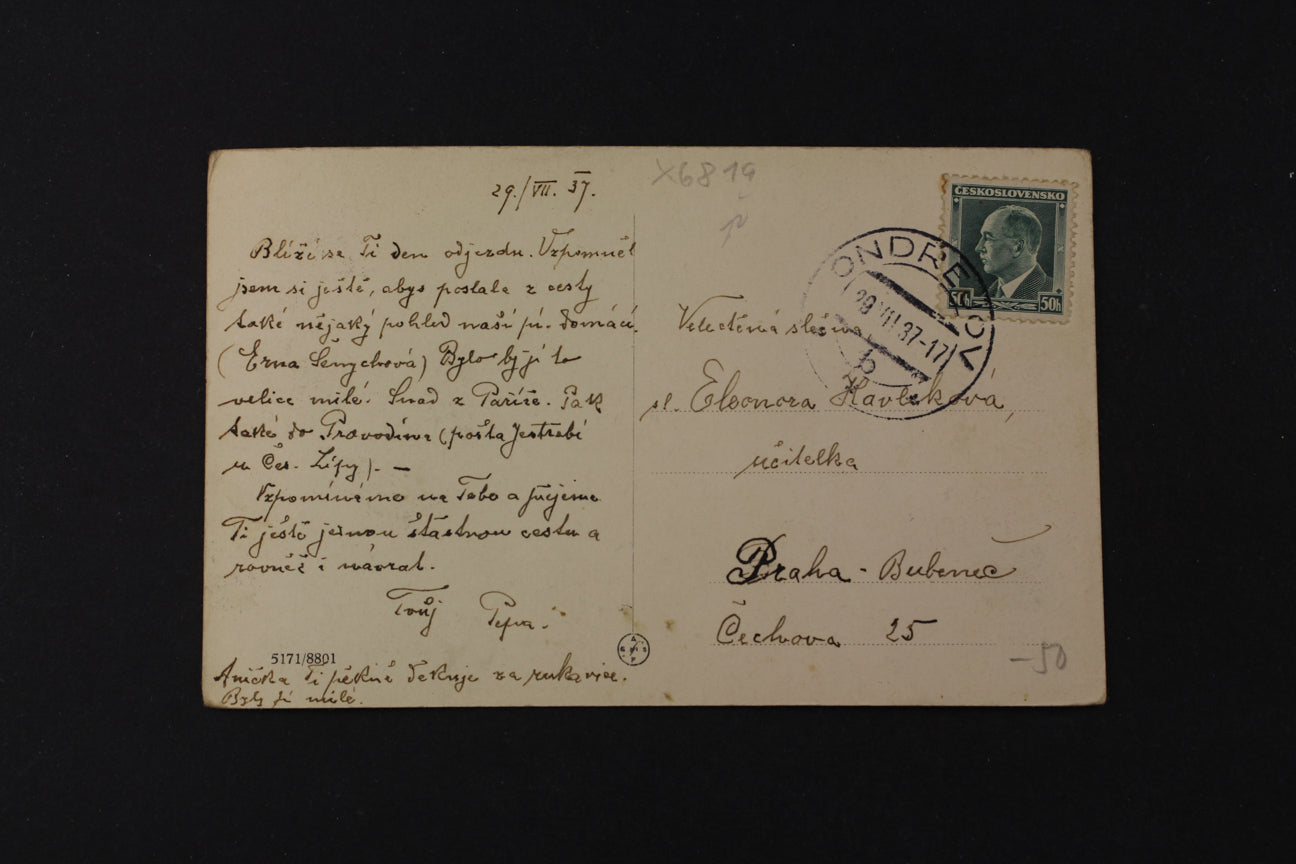 29./VII. 37.
Blíží se Ti den odjezdu. Vzpomněl
jsem si ještě, abys poslala z cesty
také nějaký pohled naší pí. domácí.
(Erna Ševychová) Bylo by jí to
velice milé. Snad z Paříže. Pak
také do Provodína (pošta Jestřebí
u Čes. Lípy). —
Vzpomínáme na Tebe a přejeme
Ti ještě jednou šťastnou cestu a
rovněž i návrat.
Tvůj Pepa.
5171/8801
Anička Ti pěkně děkuje za rukavice.
Byly jí milé.
X6819
ČESKOSLOVENSKO
50h 50h
ONDŘEJOV
29.VII.37-17
b
Velectěná slečna
sl. Eleonora Havlíková,
učitelka
Praha - Bubeneč
Čechova 25
-50